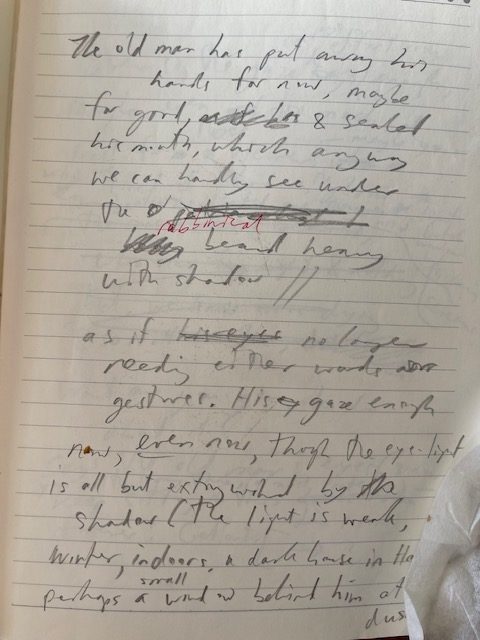 The old man has put away his
hands for now, maybe
for good, & sealed
his mouth, which anyway
we can hardly see under
the
rabbinical
beard heavy
with shadow //
as if his eyes no longer
needing either words nor
gestures. His gaze enough
now, even now, though the eye-light
is all but extinguished by the
shadow (the light is weak,
winter, indoors, a dark house in the
small
perhaps a window behind him at
dus